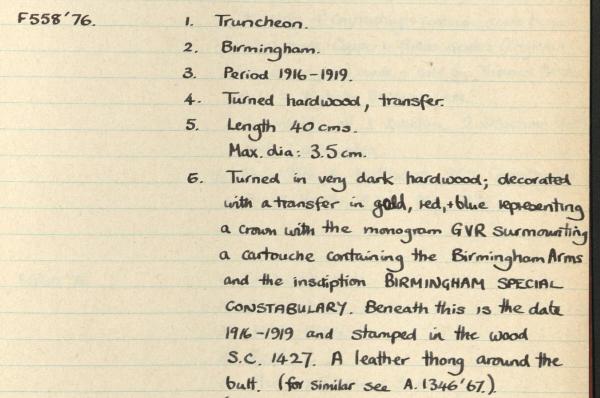 F558'76. 1. Truncheon.
2. Birmingham.
3. Period 1916-1919.
4. Turned hardwood, transfer.
5. Length 40 cms.
Max. dia: 3.5 cm.
6. Turned in very dark hardwood; decorated
with a transfer in gold, red, + blue representing
a crown with the monogram GVR surmounting
a cartouche containing the Birmingham Arms
and the inscription BIRMINGHAM SPECIAL
CONSTABULARY. Beneath this is the date
1916-1919 and stamped in the wood
S.C. 1427. A leather thong around the
butt. (for similar see A.1346'67.)